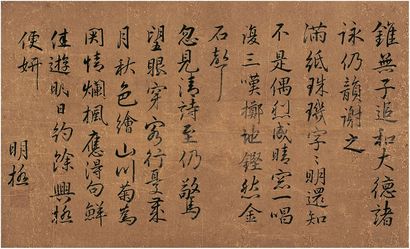 無子追和大德諸
詠仍韻謝之
滿紙珠璣字〻明還知
不是偶尓成晴窓一唱
復三嘆擲地鏗然金
石聲
忽見清詩至仍驚
望眼穿客行
月秋色繪山川菊為
関情爛楓應得句鮮
佳遊明日約餘興極
便妍
明極